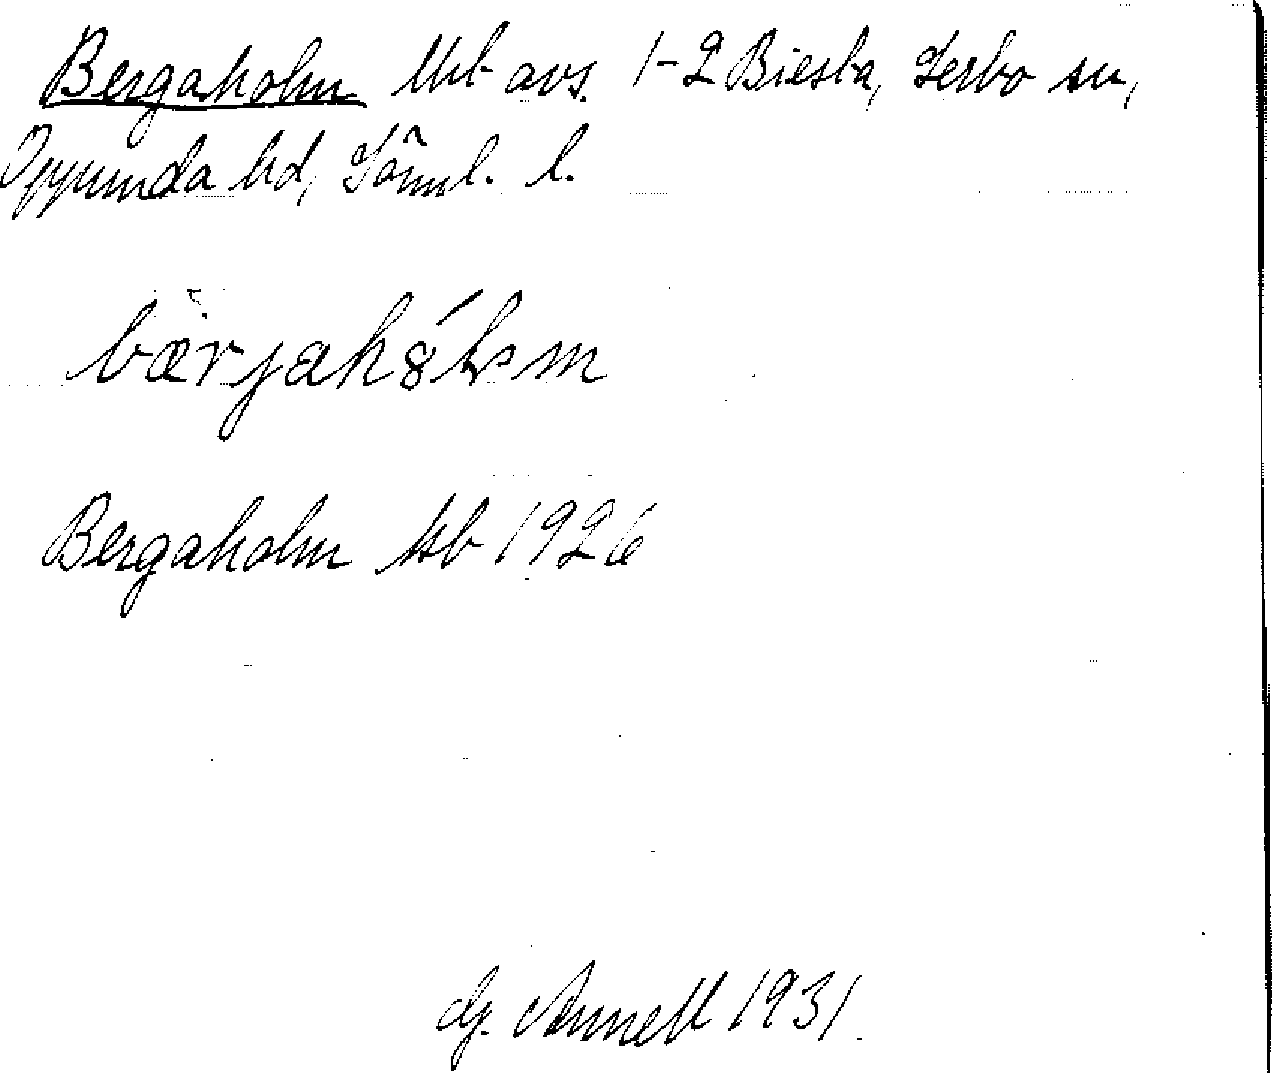 Bergaholm Utb avs. 1-2 Biesta, Lerbo sn,
Oppunda hd, Söml. l.
bærjahǻlm
Bergaholm kb 1926
G. Annell 1931.